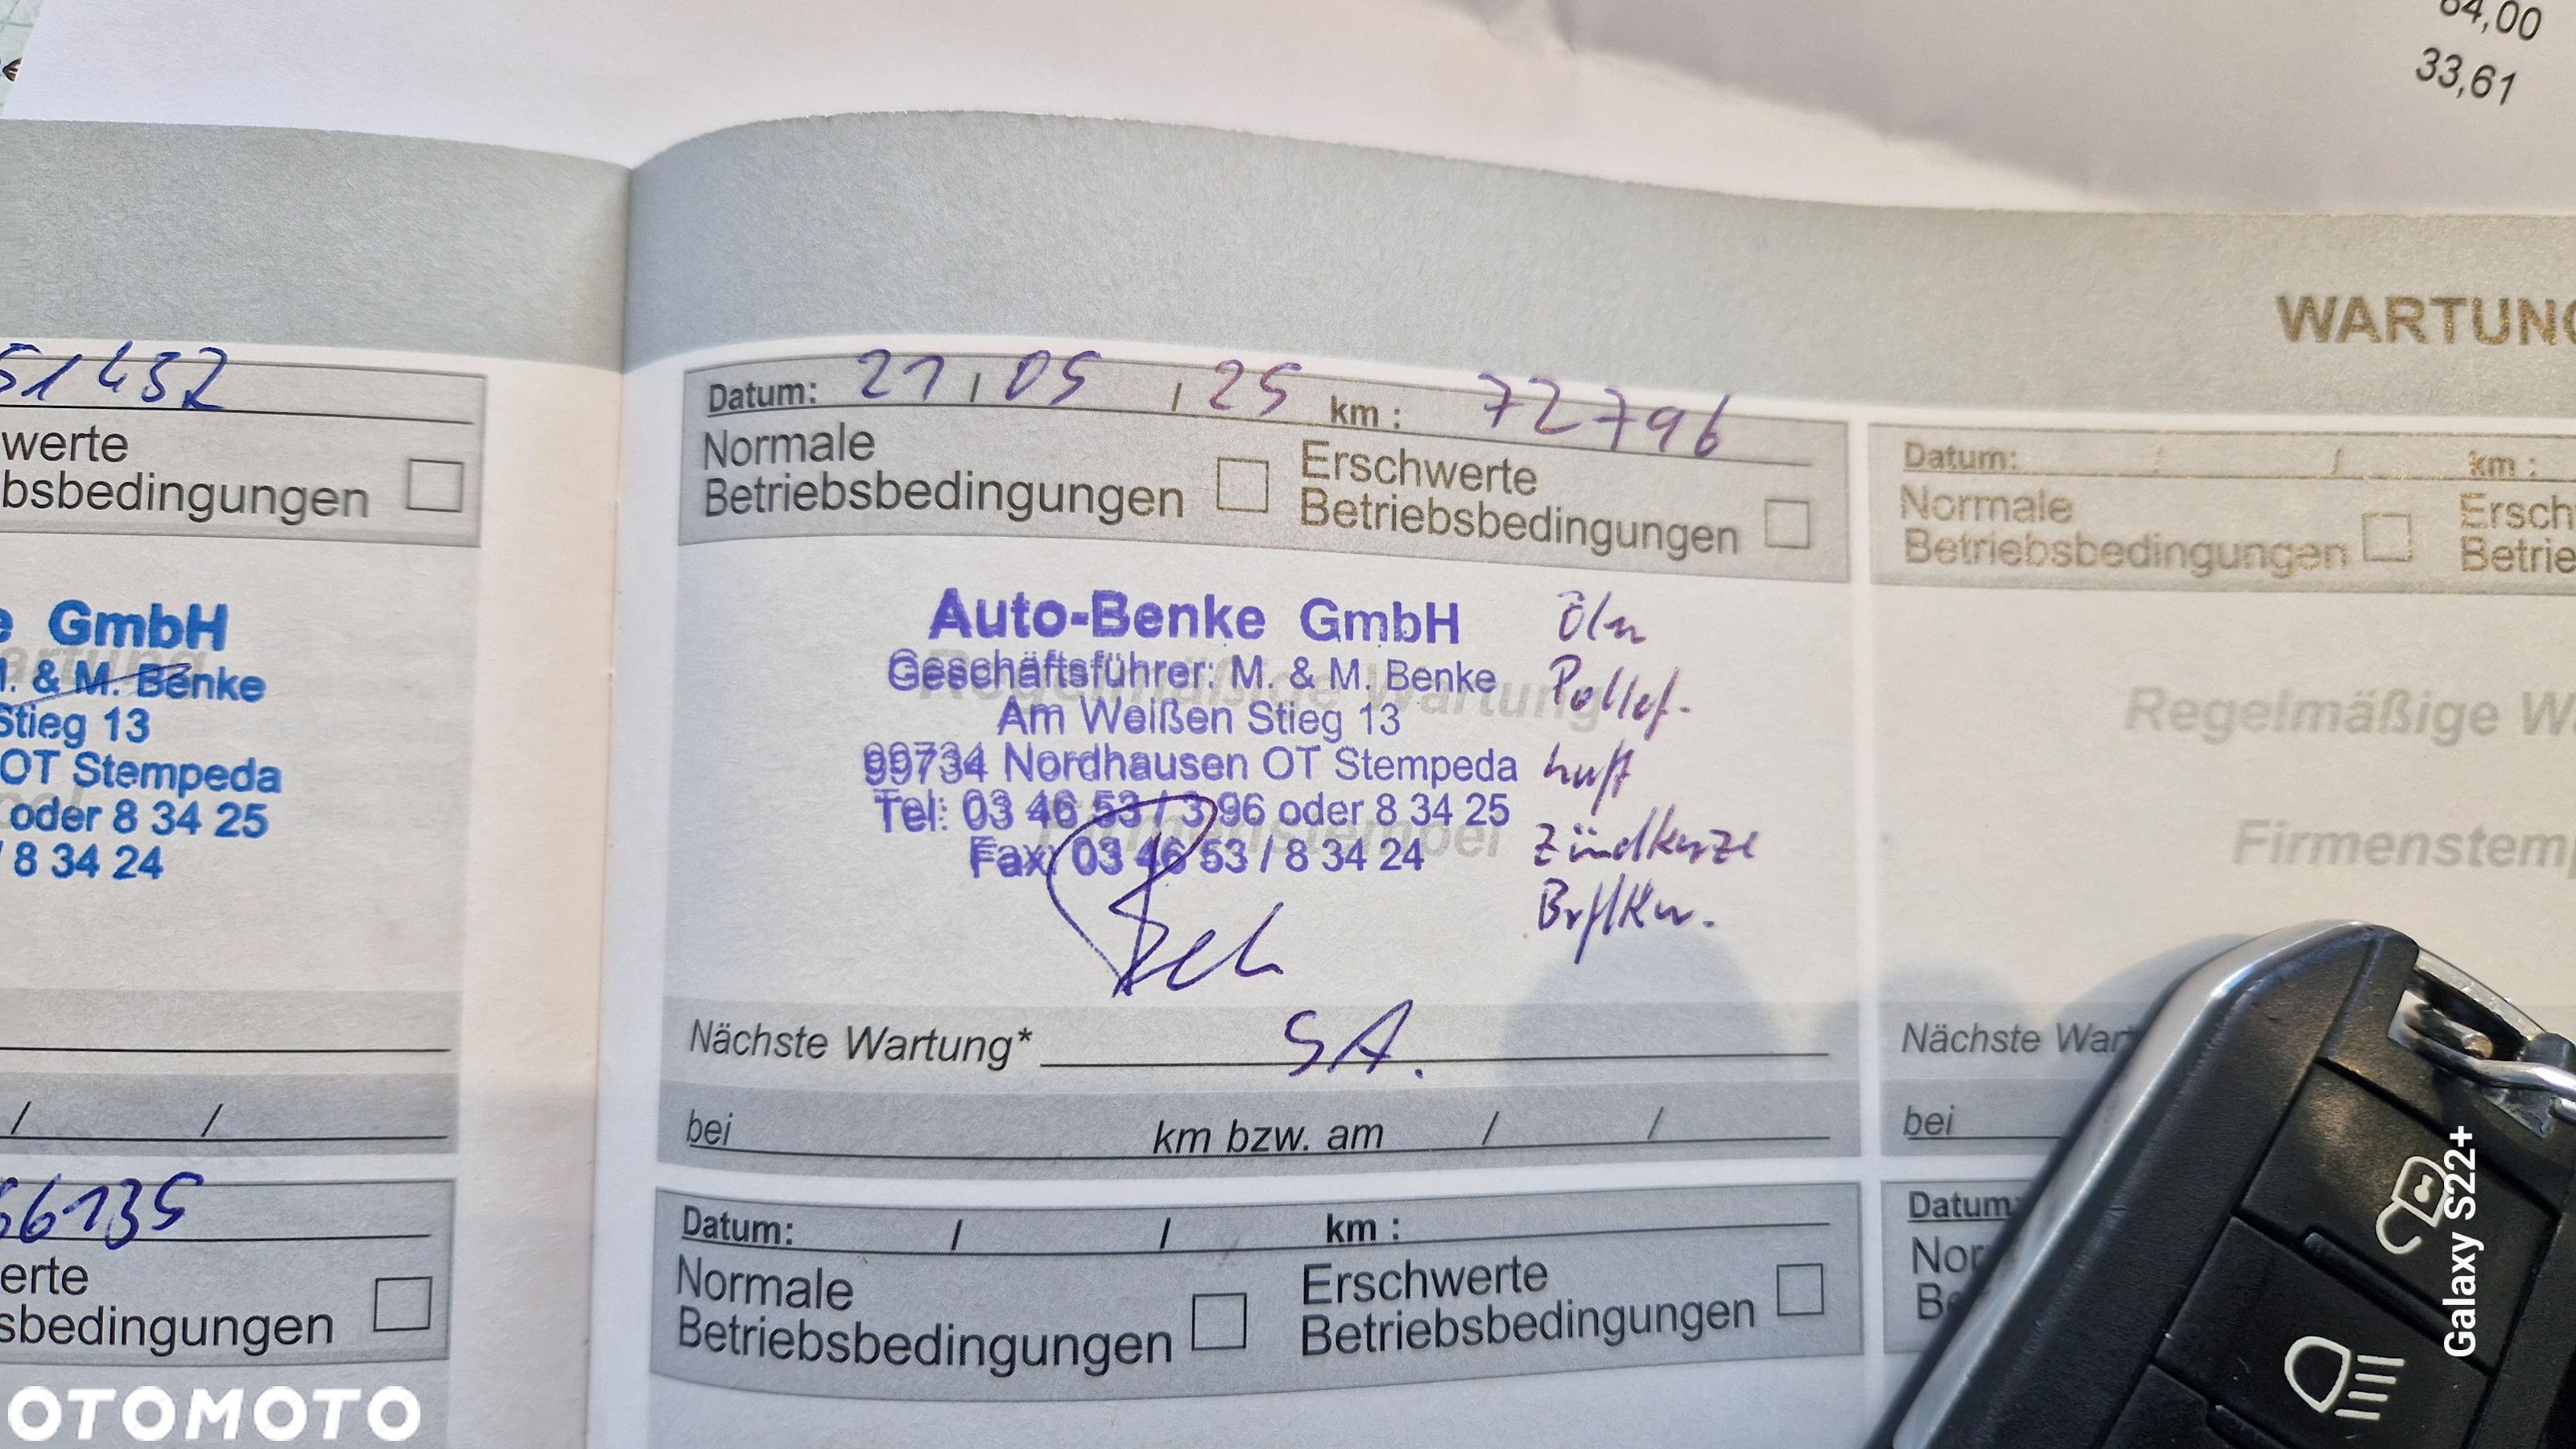 64,00
33,61
WARTUNG
51432
werte
bsbedingungen
e GmbH
M. & M. Benke
Stieg 13
OT Stempeda
oder 8 34 25
/ 8 34 24
/ /
66135
erte
sbedingungen
Datum: 21 / 05 / 25 km : 72796
Normale
Betriebsbedingungen
Erschwerte
Betriebsbedingungen
Auto-Benke GmbH
Geschäftsführer: M. & M. Benke
Am Weißen Stieg 13
99734 Nordhausen OT Stempeda
Tel: 03 46 53 / 3 96 oder 8 34 25
Fax: 03 46 53 / 8 34 24
Regelmäßige Wartung
Firmenstempel
Pollef.
Luft
Zündkerze
Nächste Wartung* SA.
bei km bzw. am / /
Datum: / / km :
Normale
Betriebsbedingungen
Erschwerte
Betriebsbedingungen
Datum: / / km :
Normale
Betriebsbedingungen
Ersch
Betrie
Regelmäßige W
Firmenstemp
Nächste War
bei
Datum
Nor
Be
Galaxy S22+
OTOMOTO